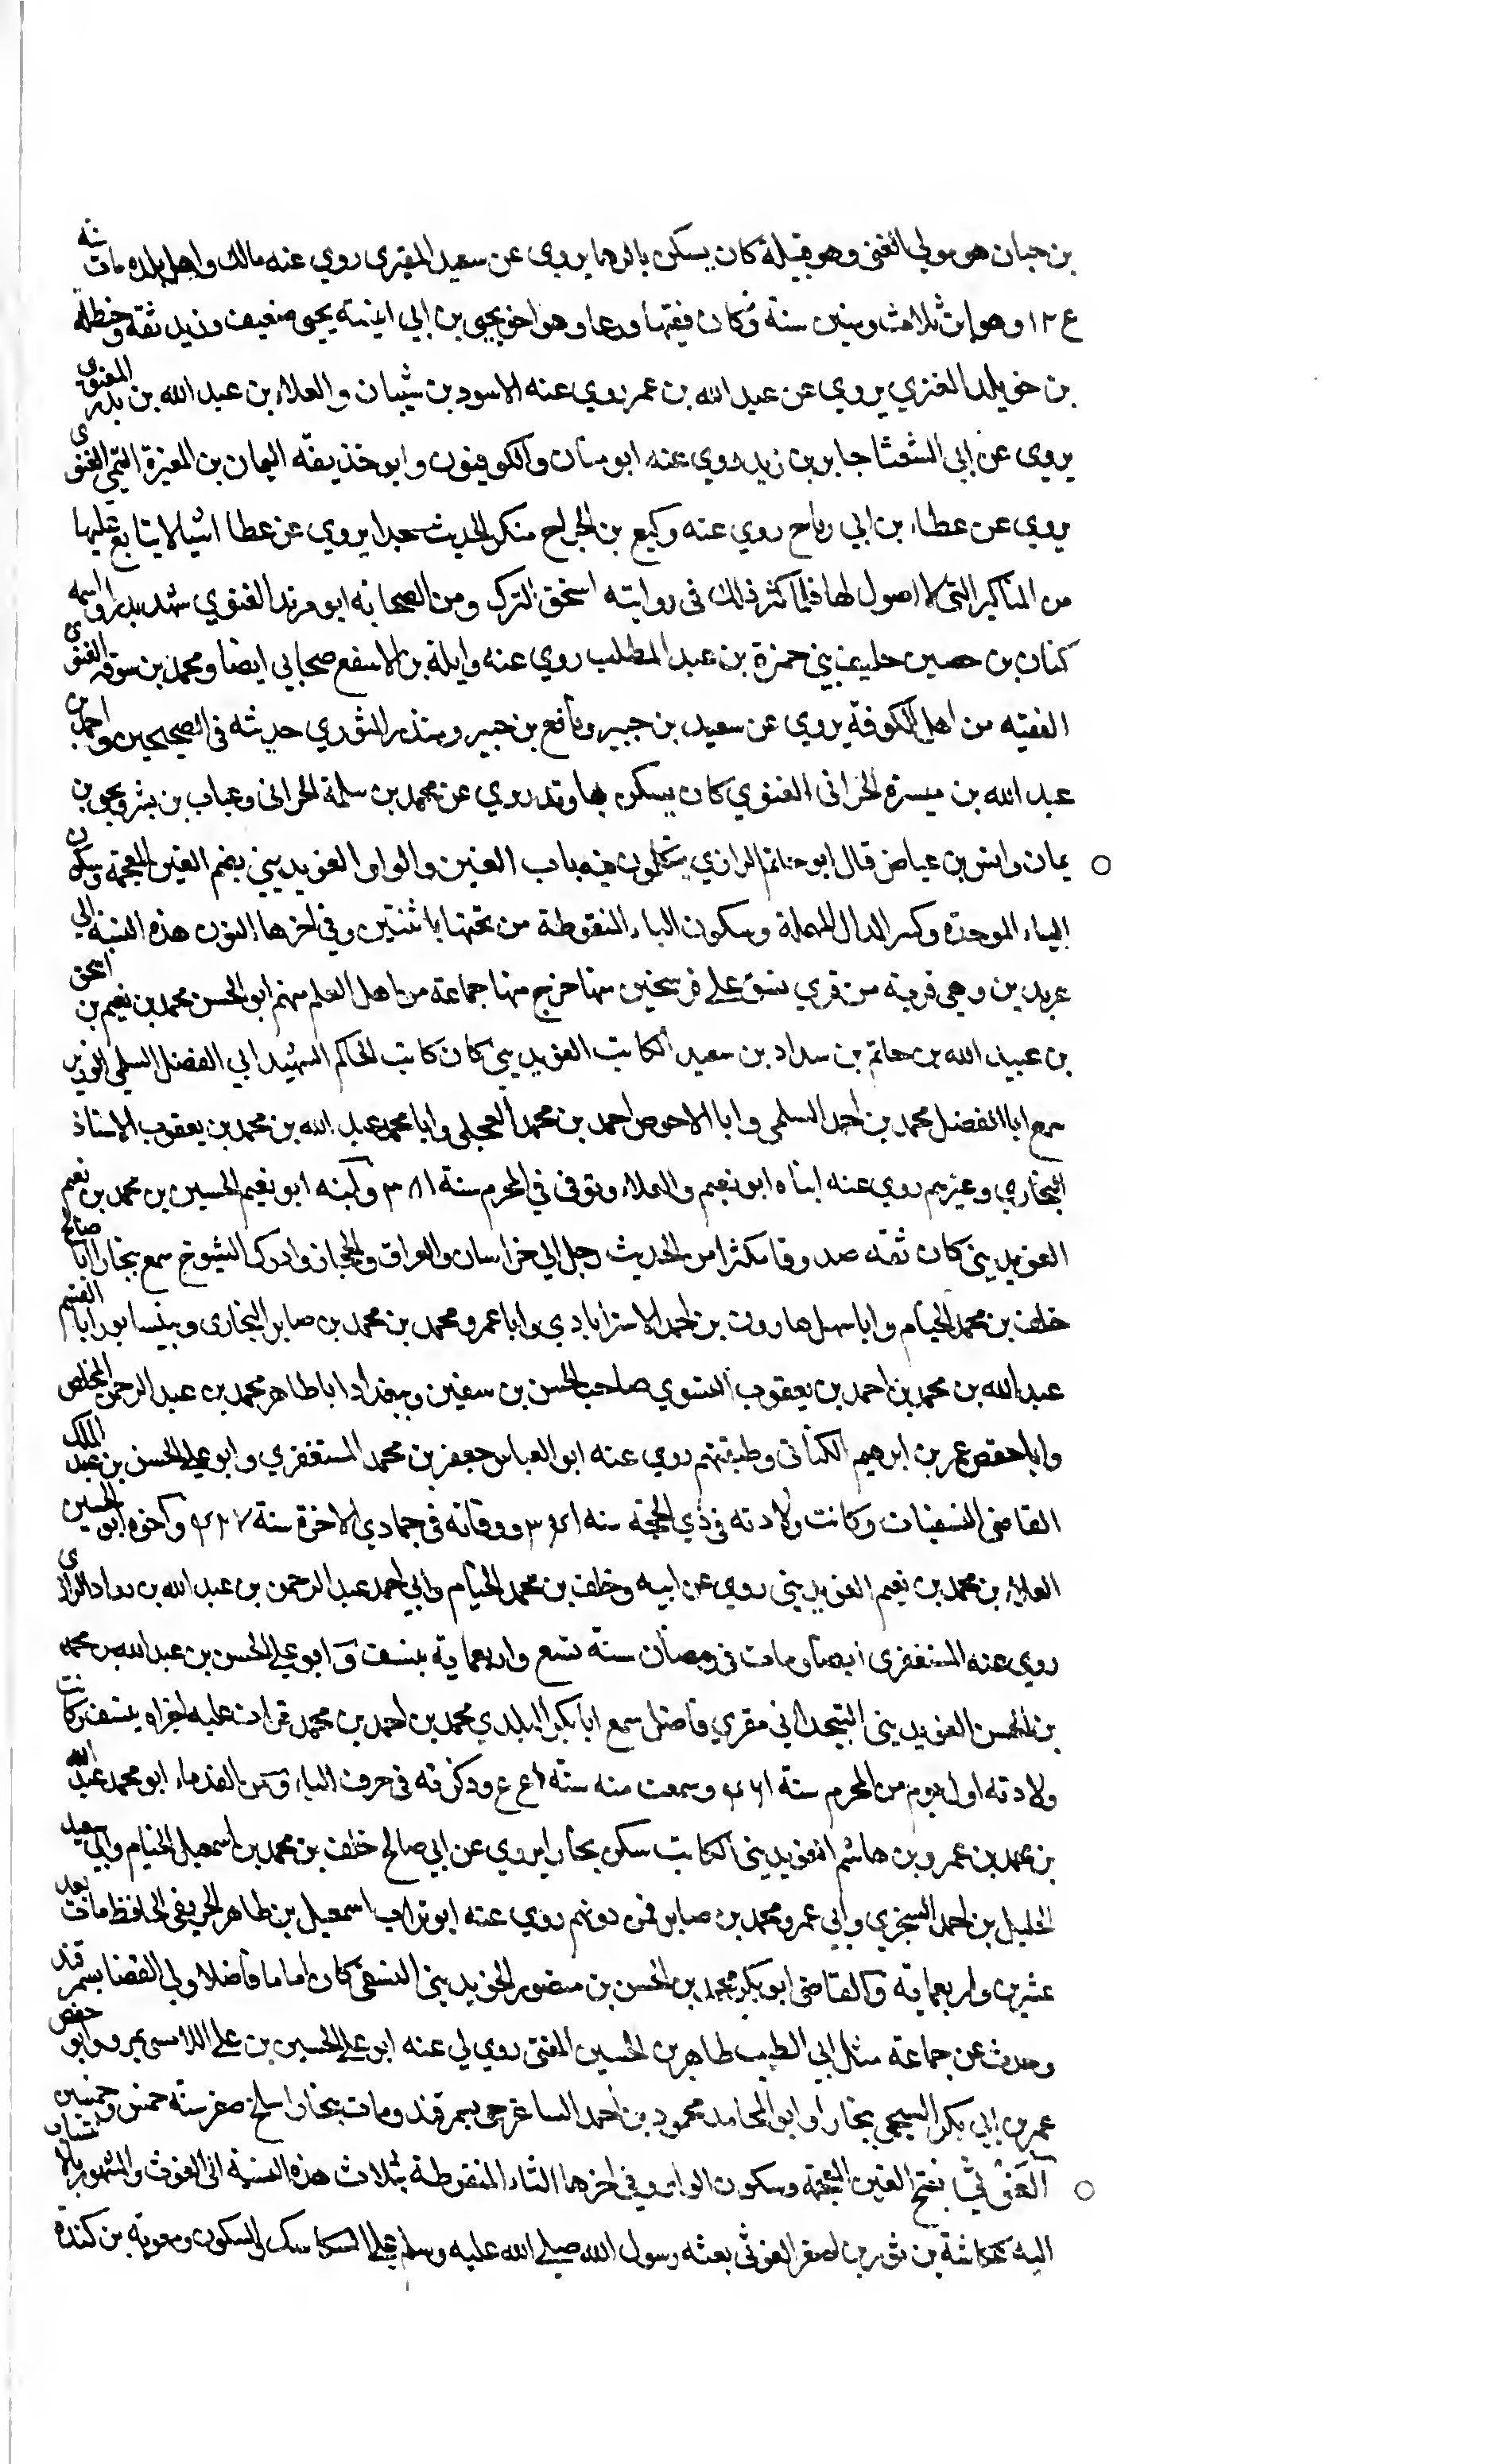 بن حبان هو مولى الغنى وهو قبيلة كان يسكن بالرها يروي عن سعيد المقبرى روى عنه مالك واهل بلده مات سنه
ع١٢ وهو ابن ثلاث وستين سنة وكان فقيها ورعا وهو اخو يحيى بن ابي انيسه يحيى ضعيف وزيد ثقة وحنظله
بن خويلد الغنزي يروي عن عبد الله بن عمر روي عنه الاسود بن شيبان والعلاء بن عبد الله بن بدر الغنوى
يروى عن ابي الشعثا جابر بن زيد روي عنه ابو سنان والكوفيون وابو حذيفه اليمان بن المغيرة التيمي الغنوى
يروي عن عطاء بن ابي رباح روي عنه وكيع بن الجراح منكر الحديث جدا يروي عن عطا اشيا لا يتابع عليها
من المناكير التي لا اصول لها فلما كثر ذلك فى روايته استحق الترك ومن الصحابه ابو مرثد الغنوي شهد بدرا واسمه
كنان بن حصين حليف بني حمزة بن عبد المطلب روي عنه وايلة بن الاسقع صحابي ايضا ومحمد بن سوقه الغنوى
الفقيه من اهل الكوفة يروي عن سعيد بن جبير ونافع بن جبير ومنذر الثوري حديثه فى الصحيحين واحمد بن
عبد الله بن ميسرة الحرانى الغنوي كان يسكن بها وقد روي عن محمد بن سلمة الحرانى وعباب بن بشر ويحيى بن
يمان وانس بن عياض قال ابو حاتم الرازي يتكلمون فيه باب الغين والواو الغوبديني بضم الغين المعجمة وسكون
الباء الموحدة وكسر الدال المهملة وسكون الياء المنقوطة من تحتها باثنتين وفي اخرها النون هذه النسبة الي
غوبدين وهي قرية من قري نسف علي فرسخين منها خرج منها جماعة من اهل العلم منهم ابو الحسن محمد بن نعيم بن اسحق
بن عبيد الله بن حاتم بن سداد بن سعيد الكاتب الغوبديني كان كاتب الحاكم الشهيد ابي الفضل السلمي الوزير
سمع ابا الفضل محمد بن احمد السلمي وابا الاحوص احمد بن محمد العجلي وابا محمد عبد الله بن محمد بن يعقوب الاستاذ
البخاري وغيرهم روي عنه ابناه ابو نعيم والعلاء وتوفي في المحرم سنة ٣٨١ وابنه ابو نعيم الحسين بن محمد بن نعيم
الغوبديني كان ثقه صدوقا مكثرا من الحديث رحل الي خراسان والعراق والحجاز وادرك الشيوخ سمع ببخارا ابا صالح
خلف بن محمد الخيام وابا سهل هارون بن احمد الاسترابادي وابا عمرو محمد بن محمد بن صابر البخارى وبنيسابور ابا القسم
عبد الله بن محمد بن احمد بن يعقوب النسوي صاحب الحسن بن سفين وببغداد ابا طاهر محمد بن عبد الرحمن المخلص
وابا حفص عمر بن ابرهيم الكتانى وطبقتهم روي عنه ابو العباس جعفر بن محمد المستغفري وابو علي الحسن بن عبد الملك
القاضي النسفيان وكانت ولادته في ذي الحجة سنه ووفاته في جمادي الاخرة سنة ٤٢٧ واخوه ابو الحسين
العلاء بن محمد بن نعيم الغوبديني روي عن ابيه وخلف بن محمد الخيام وابي احمد عبد الرحمن بن عبد الله بن الرازى
روي عنه المستغفرى ايضا ومات فى رمضان سنة تسع واربعماية بنسف وابو علي الحسن بن عبد الله بن محمد
بن الحسن الغوبدينى مقري فاضل سمع ابا بكر البلدي محمد بن احمد بن محمد قرات عليه اجزاء بنسف وكانت
ولادته اول يوم من المحرم سنة وسمعت منه سنة وذكرته فى حرف الباء ومن القدماء ابو محمد عبد الله
بن محمد بن عمرو بن هاشم الغوبدينى الكاتب سكن بخارا يروي عن ابي صالح خلف بن محمد بن اسمعيل الخيام وابي سعيد
الخليل بن احمد السجزي وابي عمرو محمد بن صابر فمن دونهم روي عنه ابو تراب اسمعيل بن طاهر الحافظ مات بعد
عشرين واربعماية والقاضى ابو بكر محمد بن الحسن بن منصور الغوبدينى النسفى كان اماما فاضلا ولي القضا بسمرقند
وحدث عن جماعة مثل ابي الطيب طاهر بن الحسين المفتى روي لي عنه ابو علي الحسين بن علي اللامسى بمرو وابو حفص
عمر بن ابي بكر السبحى ببخارا وابو المحامد محمود بن احمد الساغرجى بسمرقند ومات ببخارا سلخ صفر سنة خمس وخمسين
الغوثي بفتح الغين المعجمة وسكون الواو وفي اخرها الثاء المنقوطة بثلاث هذه النسبة الى الغوث والمشهور بالانتساب
اليه عكاشة بن ثور بن اصغر الغوثى بعثه رسول الله صلي الله عليه وسلم علي السكاسك والسكون ومعوية بن كندة